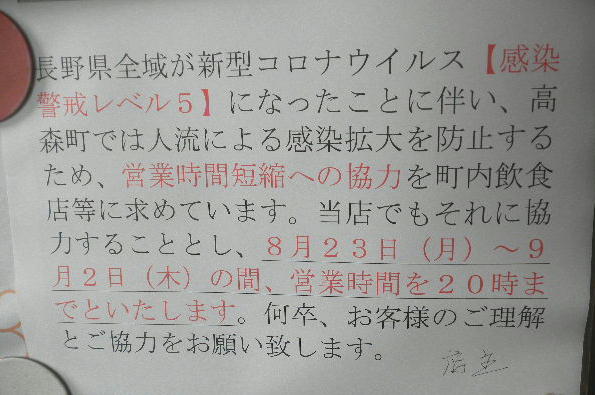 長野県全域が新型コロナウイルス【感染
警戒レベル５】になったことに伴い、高
森町では人流による感染拡大を防止する
ため、営業時間短縮への協力を町内飲食
店等に求めています。当店でもそれに協
力することとし、８月２３日（月）～９
月２日（木）の間、営業時間を２０時ま
でといたします。何卒、お客様のご理解
とご協力をお願い致します。
店主